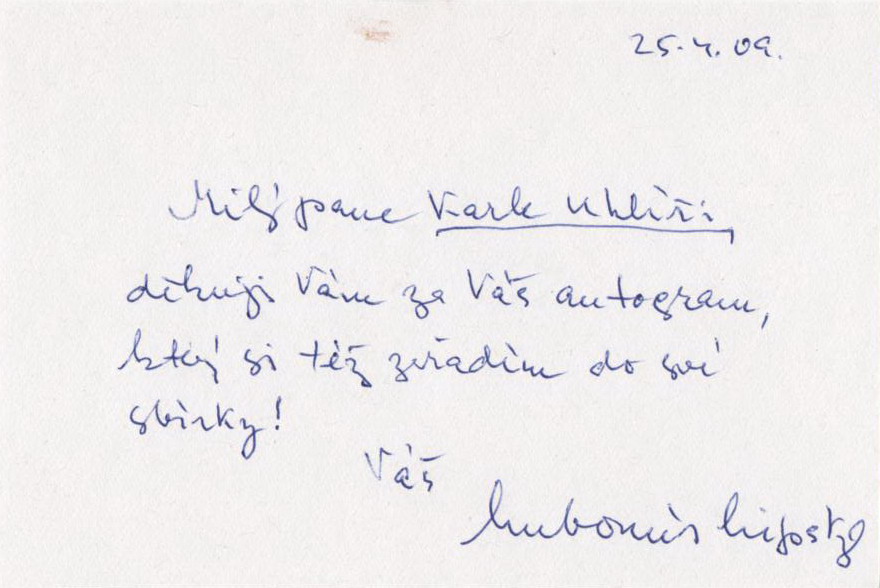 25.4.09.
Milý pane Karle Uhlíři
děkuji Vám za Váš autogram,
který si též zařadím do své
sbírky!
Váš
Lubomír Lipský